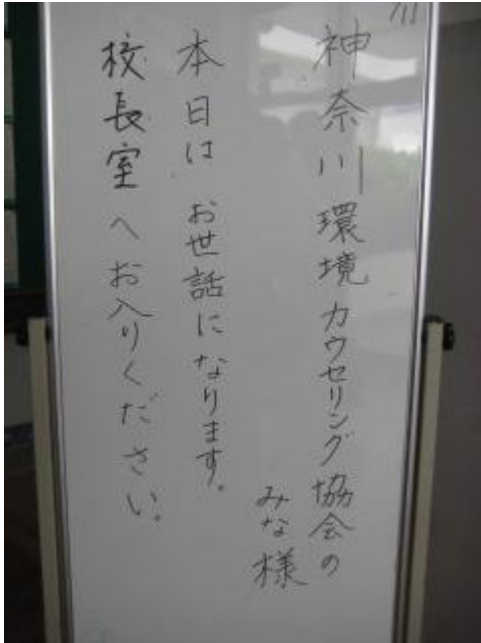 神奈川環境カウセリング協会の
みな様
本日は お世話になります。
校長室へお入りください。